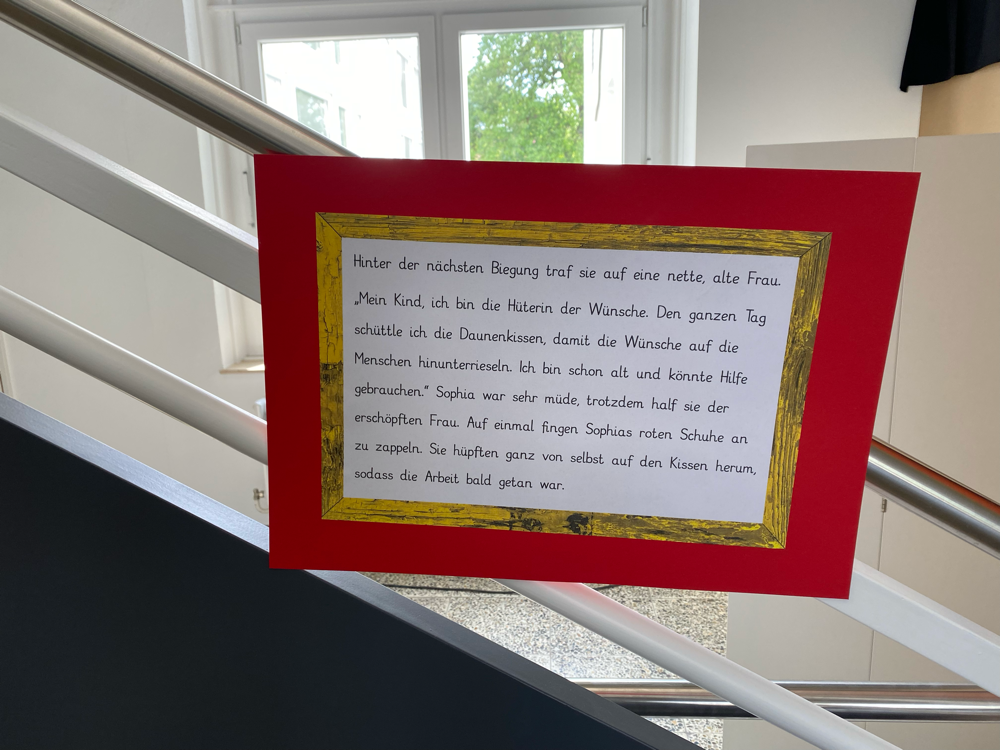 Hinter der nächsten Biegung traf sie auf eine nette, alte Frau.
„Mein Kind, ich bin die Hüterin der Wünsche. Den ganzen Tag
schüttle ich die Daunenkissen, damit die Wünsche auf die
Menschen hinunterrieseln. Ich bin schon alt und könnte Hilfe
gebrauchen.“ Sophia war sehr müde, trotzdem half sie der
erschöpften Frau. Auf einmal fingen Sophias roten Schuhe an
zu zappeln. Sie hüpften ganz von selbst auf den Kissen herum,
sodass die Arbeit bald getan war.